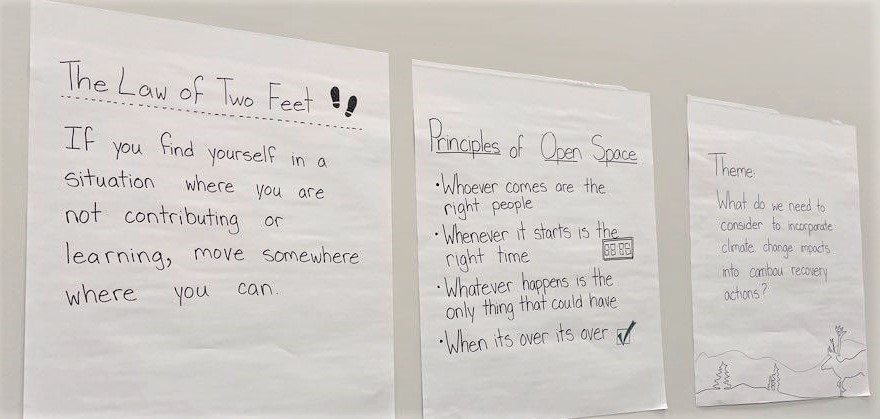 The Law of Two Feet
If you find yourself in a
situation where you are
not contributing or
learning, move somewhere
where you can.
Principles of Open Space
•Whoever comes are the
right people
•Whenever it starts is the
right time
•Whatever happens is the
only thing that could have
•When its over its over
Theme:
What do we need to
consider to incorporate
climate change impacts
into caribou recovery
actions?